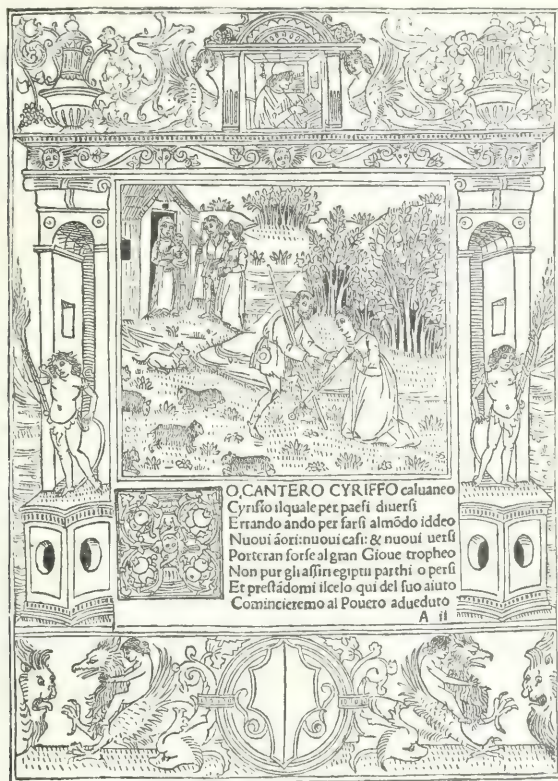 O, CANTERO CYRIFFO caluaneo
Cyriffo ilquale per paesi diuersi
Errando ando per farsi almōdo iddeo
Nuoui āori: nuoui casi: & nuoui uersi
Porteran forse al gran Gioue tropheo
Non pur gli assiri egiptii parthi o persi
Et prestādomi ilcelo qui del suo aiuto
Comincieremo al Pouero adueduto
A ii